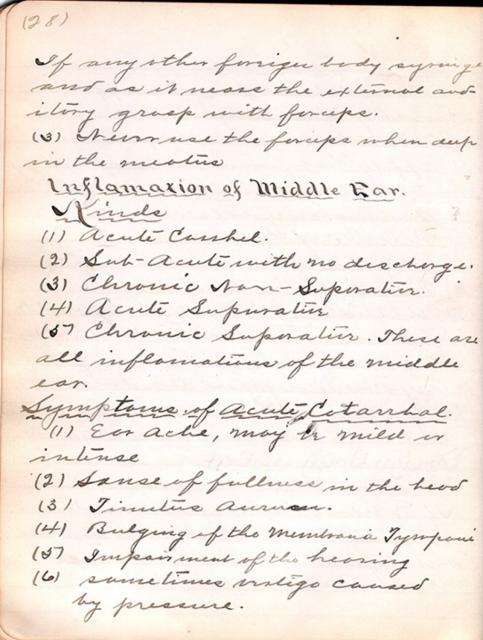 (28)
If any other foreign body syringe
and as it nears the external aud
itory grasp with forceps.
(3) Never use the forceps when deep
in the meatus
Inflamaxion of Middle Ear.
Kinds
(1) Acute
(2) Sub-Acute with no discharge.
(3) Chronic Non-Suporativ.
(4) Acute Supurativ
(5) Chronic Suporativ. These are
all inflamations of the middle
ear.
Symptoms of Acute Catarrhal.
(1) Ear Ache, may be mild or
intense
(2) Sense of fullness in the head
(3) Tinitus Aurum.
(4) Bulging of the Membrania Tympani
(5) Impairment of the hearing
(6) sometimes vertigo caused
by pressure.